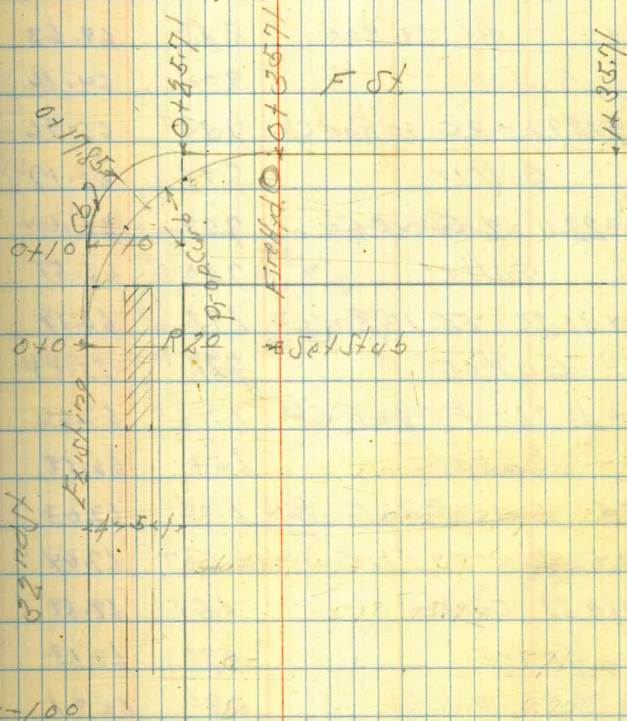 F St.
0+25.71
0+35.71
1+35.71
0+17.85
Cb
0+10
10
Prop Curb
Fire Hyd.
0+0
R20
Set Stub
Existing
4 5 1
32nd St
-100